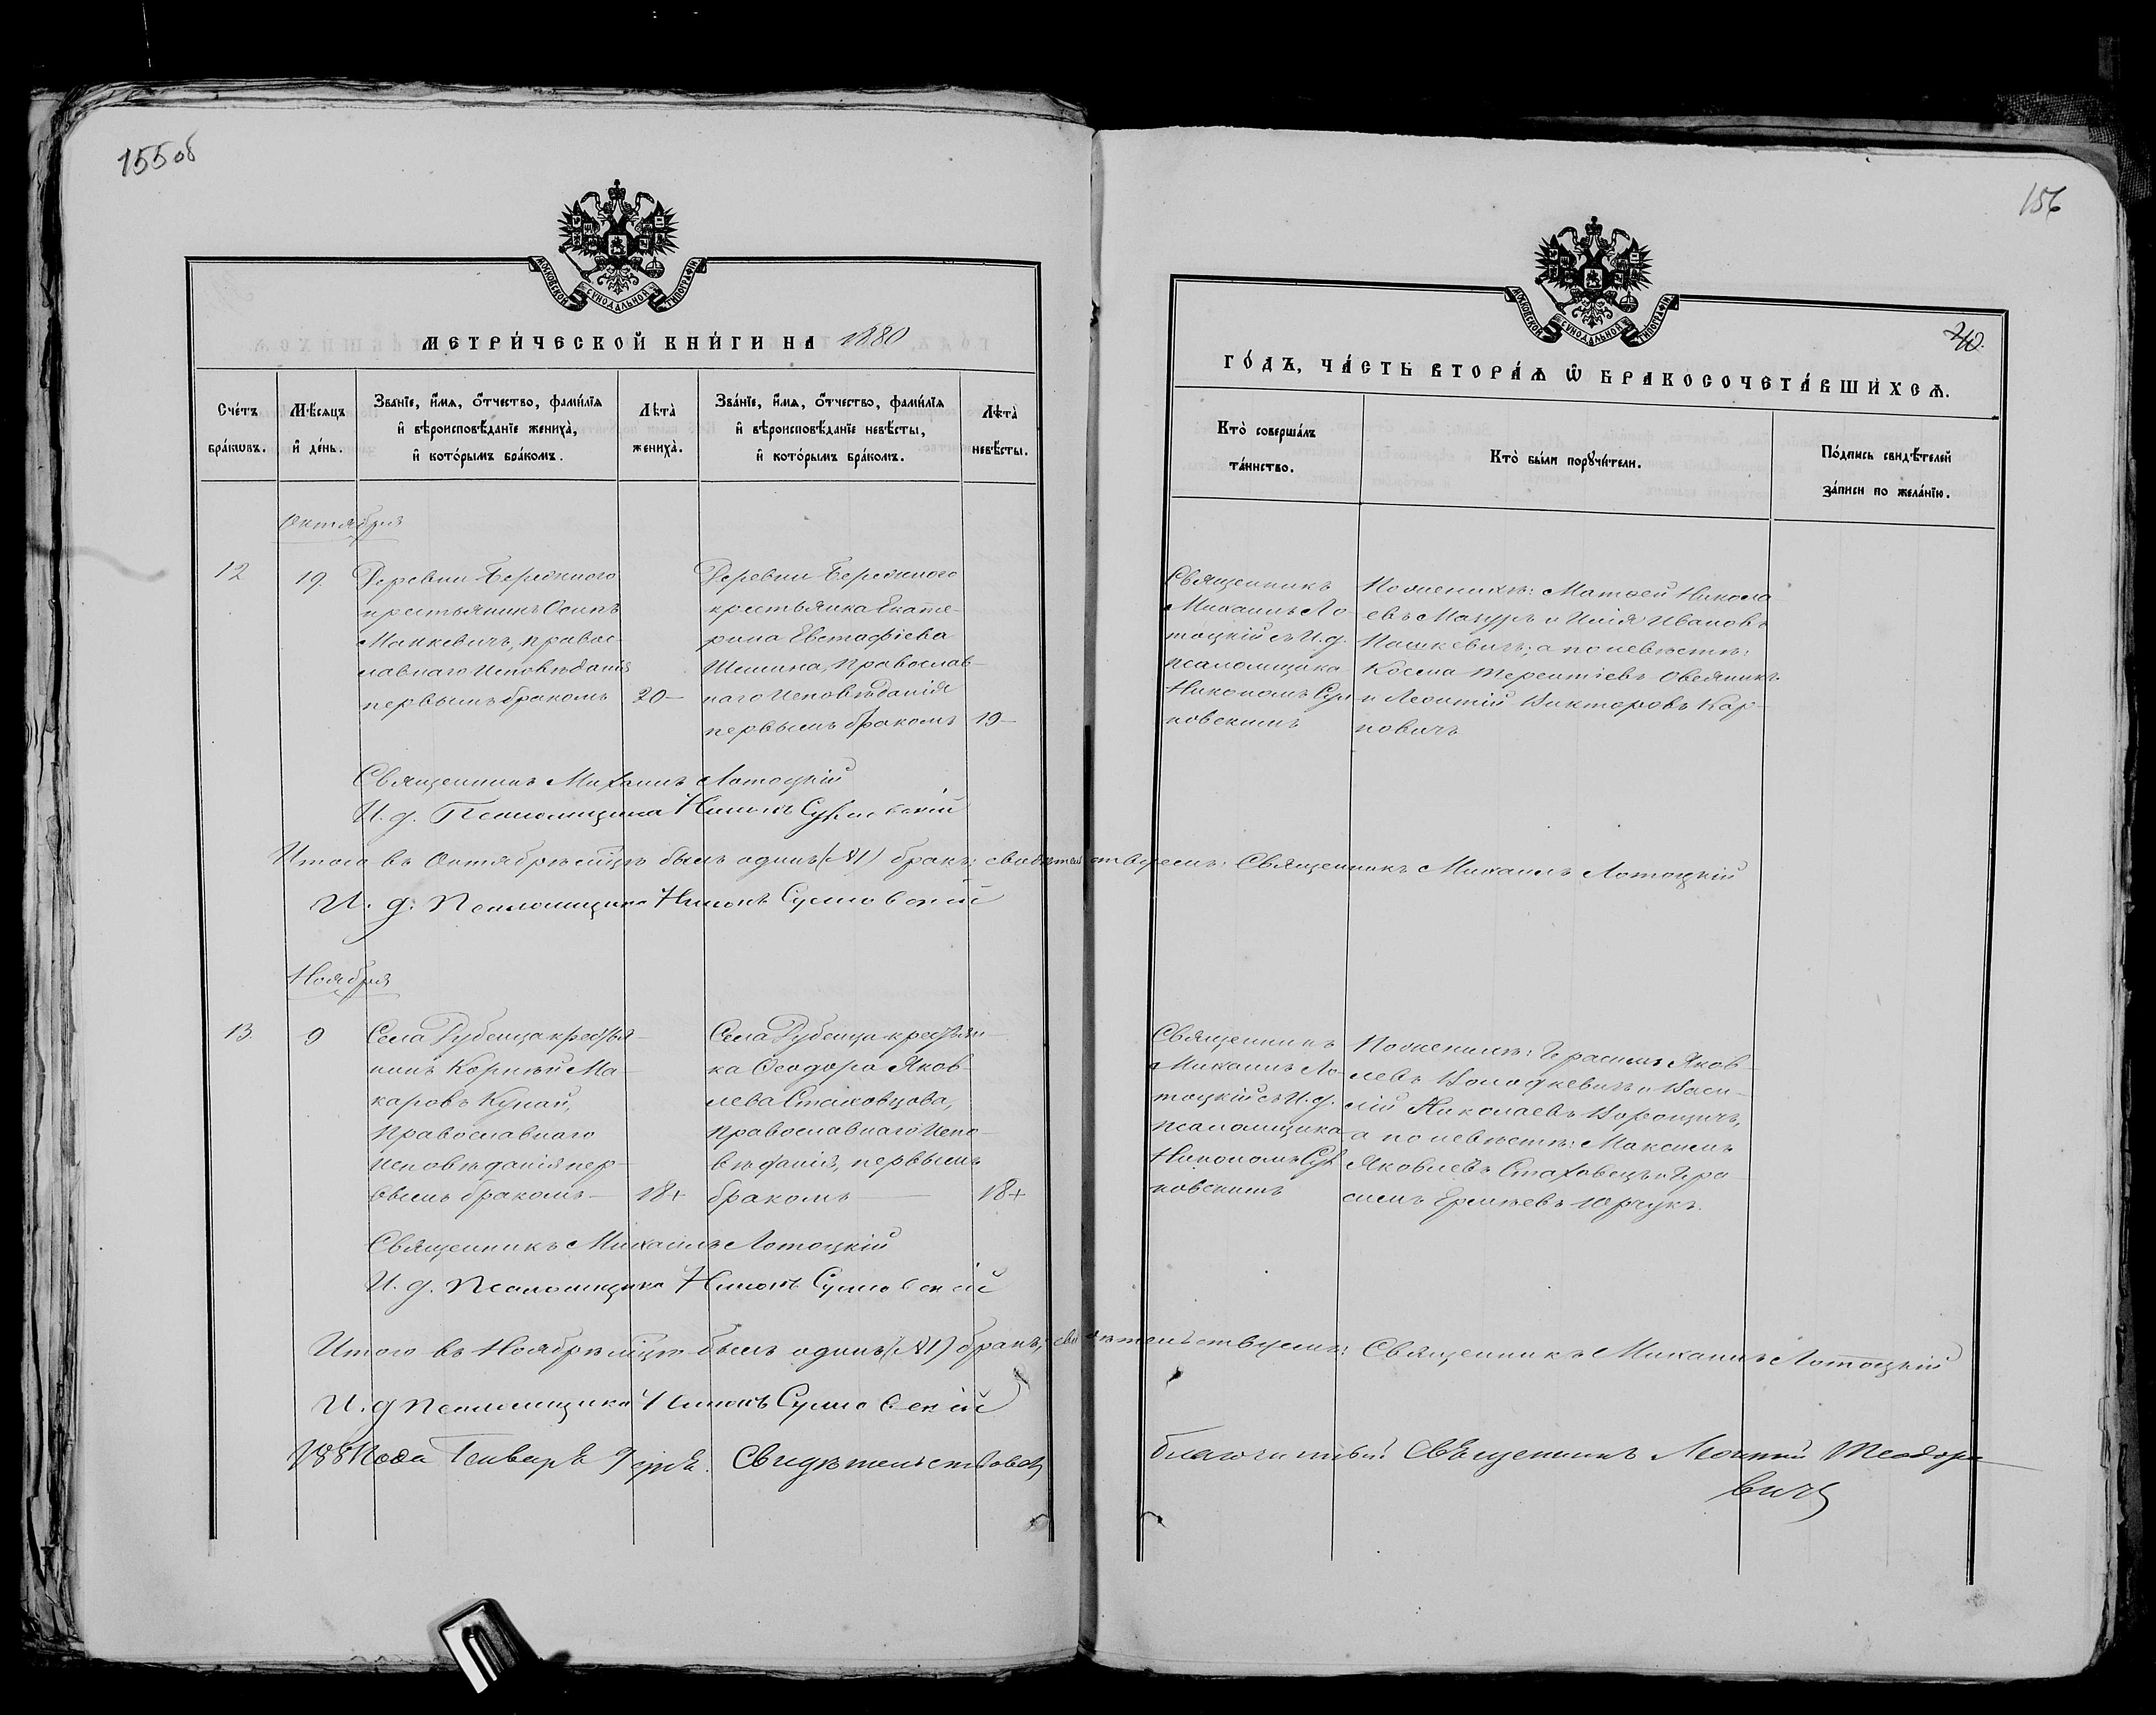 155об
МОСКОВСКОЙ СѴНОДАЛЬНОЙ ТИПОГРАФІИ
МЕТРИ́ЧЕСКОЙ КНИ́ГИ НА 1880
Сче́тъ бра́кѡвъ.
Мѣ́сяцъ и҆ де́нь.
Зва́нїе, и҆́мѧ, ѻ҆́тчество, фами́лїѧ
и҆ вѣроисповѣ́данїе жениха̀,
и҆ кото́рымъ бра́комъ.
Лѣта̀ жениха̀.
Зва́нїе, и҆́мѧ, ѻ҆́тчество, фами́лїѧ
и҆ вѣроисповѣ́данїе невѣ́сты,
и҆ кото́рымъ бра́комъ.
Лѣта̀ невѣ́сты.
Октября
12
19.
Деревни Бережного
крестьянинъ Осипъ
Манкевичъ, правос-
лавнаго исповѣданія
первымъ бракомъ
20
Деревни Бережного
крестьянка Екате-
рина Евстафіева
православ-
наго исповѣданія
первымъ бракомъ
19
Священникъ Михаилъ Лотоцкій
И. д. Псаломщика Никонъ
Итого въ Октябрѣ м̃цѣ былъ одинъ (№1) бракъ; свидѣтельствуемъ: Священникъ Михаилъ Лотоцкій
И. д. Псаломщика Никонъ
Ноября
13.
9
Села крестья-
нинъ Корнѣй Ма-
каровъ Купай,
православнаго
исповѣданія пер-
вымъ бракомъ
18
Села крестьян-
ка Ѳеодора Яков-
лева Стаховцова,
православнаго испо-
вѣданія, первымъ
бракомъ
18
Священникъ Михаилъ Лотоцкій
И. д. Псаломщика Никонъ
Итого въ Ноябрѣ м̃цѣ былъ одинъ (№1) бракъ; свидѣтельствуемъ: Священникъ Михаилъ Лотоцкій
И. д Псаломщика Никонъ
1881 года Генваря 9 дня. Свидѣтельствовалъ благочинный Священникъ
156
МОСКОВСКОЙ СѴНОДАЛЬНОЙ ТИПОГРАФІИ
ГО́ДЪ, ЧА́СТЬ ВТОРА́Ѧ Ѡ҆ БРАКОСОЧЕТА́ВШИХСѦ.
Кто̀ соверша́лъ та́инство.
Кто̀ бы́ли порꙋчи́тели.
По́дпись свидѣ́телей за́писи по жела́нїю.
Священникъ
Михаилъ Ло-
тоцкій съ И. д.
псаломщика
Никономъ
По женихѣ: Матѳей Никола-
евъ Мазуръ и Илія Ивановъ
Пашкевичъ; а по невѣстѣ:
Косма Терентіевъ Овсяникъ
и Леонтій Викторовъ Кар-
повичъ
Священникъ
Михаилъ Ло-
тоцкій съ И. д.
псаломщика
Никономъ
По женихѣ: Герасимъ Яков-
левъ Володкевичъ и Васи-
лій Николаевъ
а по невѣстѣ: Максимъ
Яковлевъ Стаховецъ и Гера-
симъ Юрчукъ.